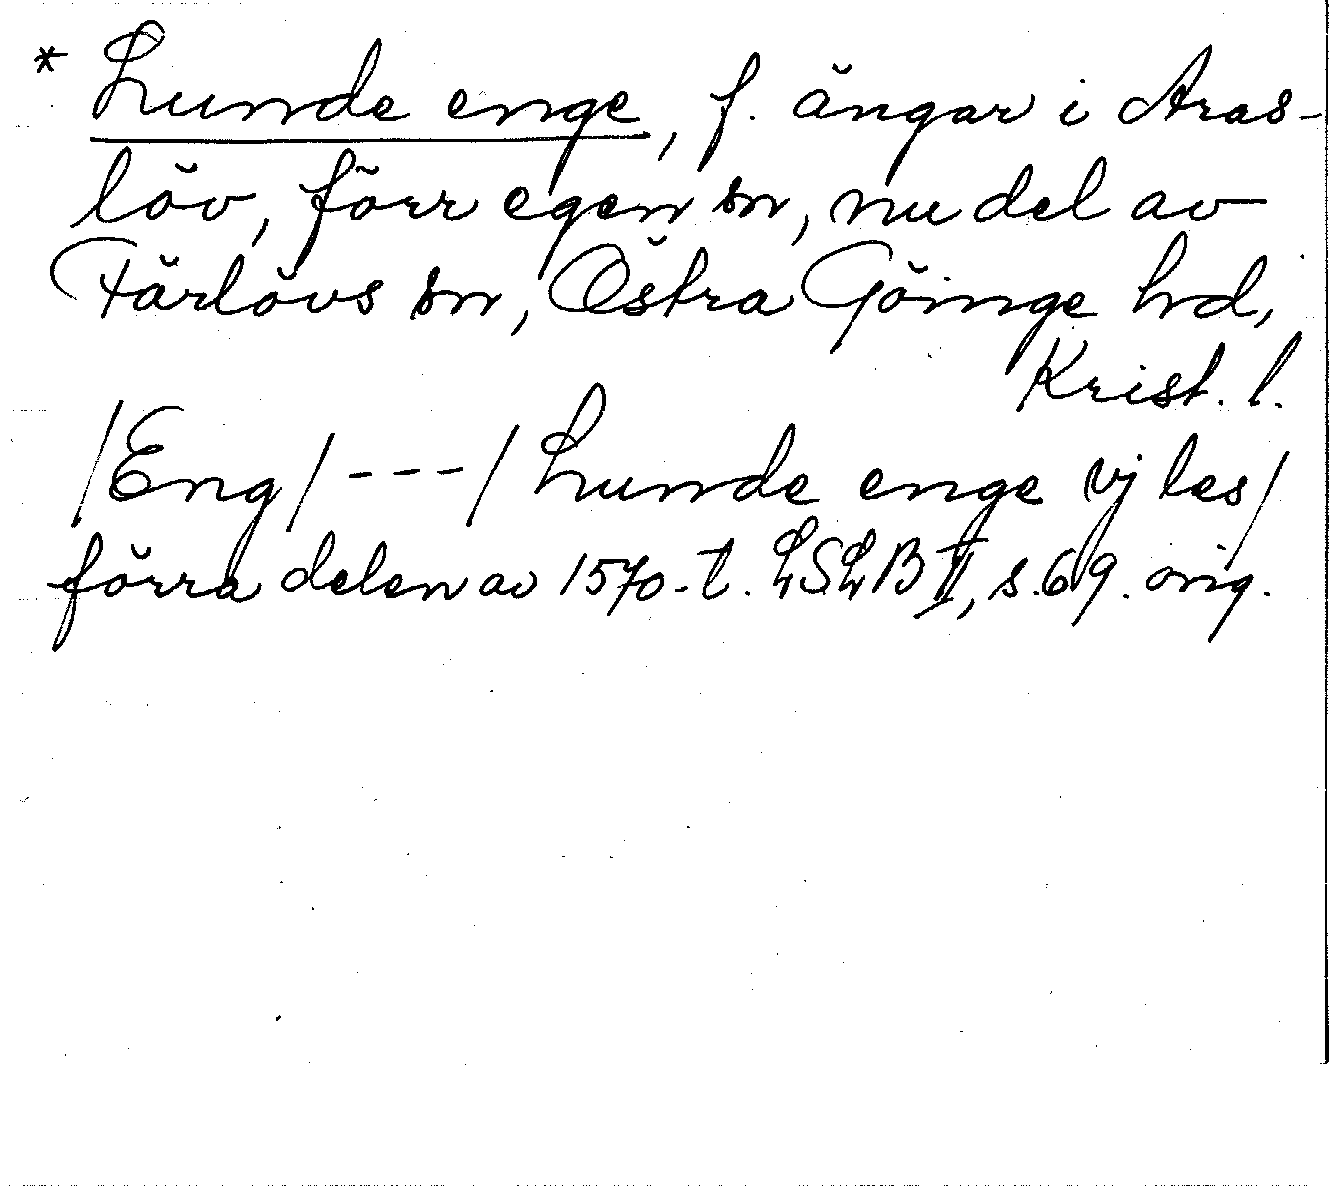 * Lunde enge, f. ängar i Aras-
löv, förr egen sn, nu del av
Färlövs sn, Östra Göinge hd,
Krist. l.
/Eng/ --- / Lunde enge vj les/
förra delen av 1570-t. LSLB II, s. 69. orig.